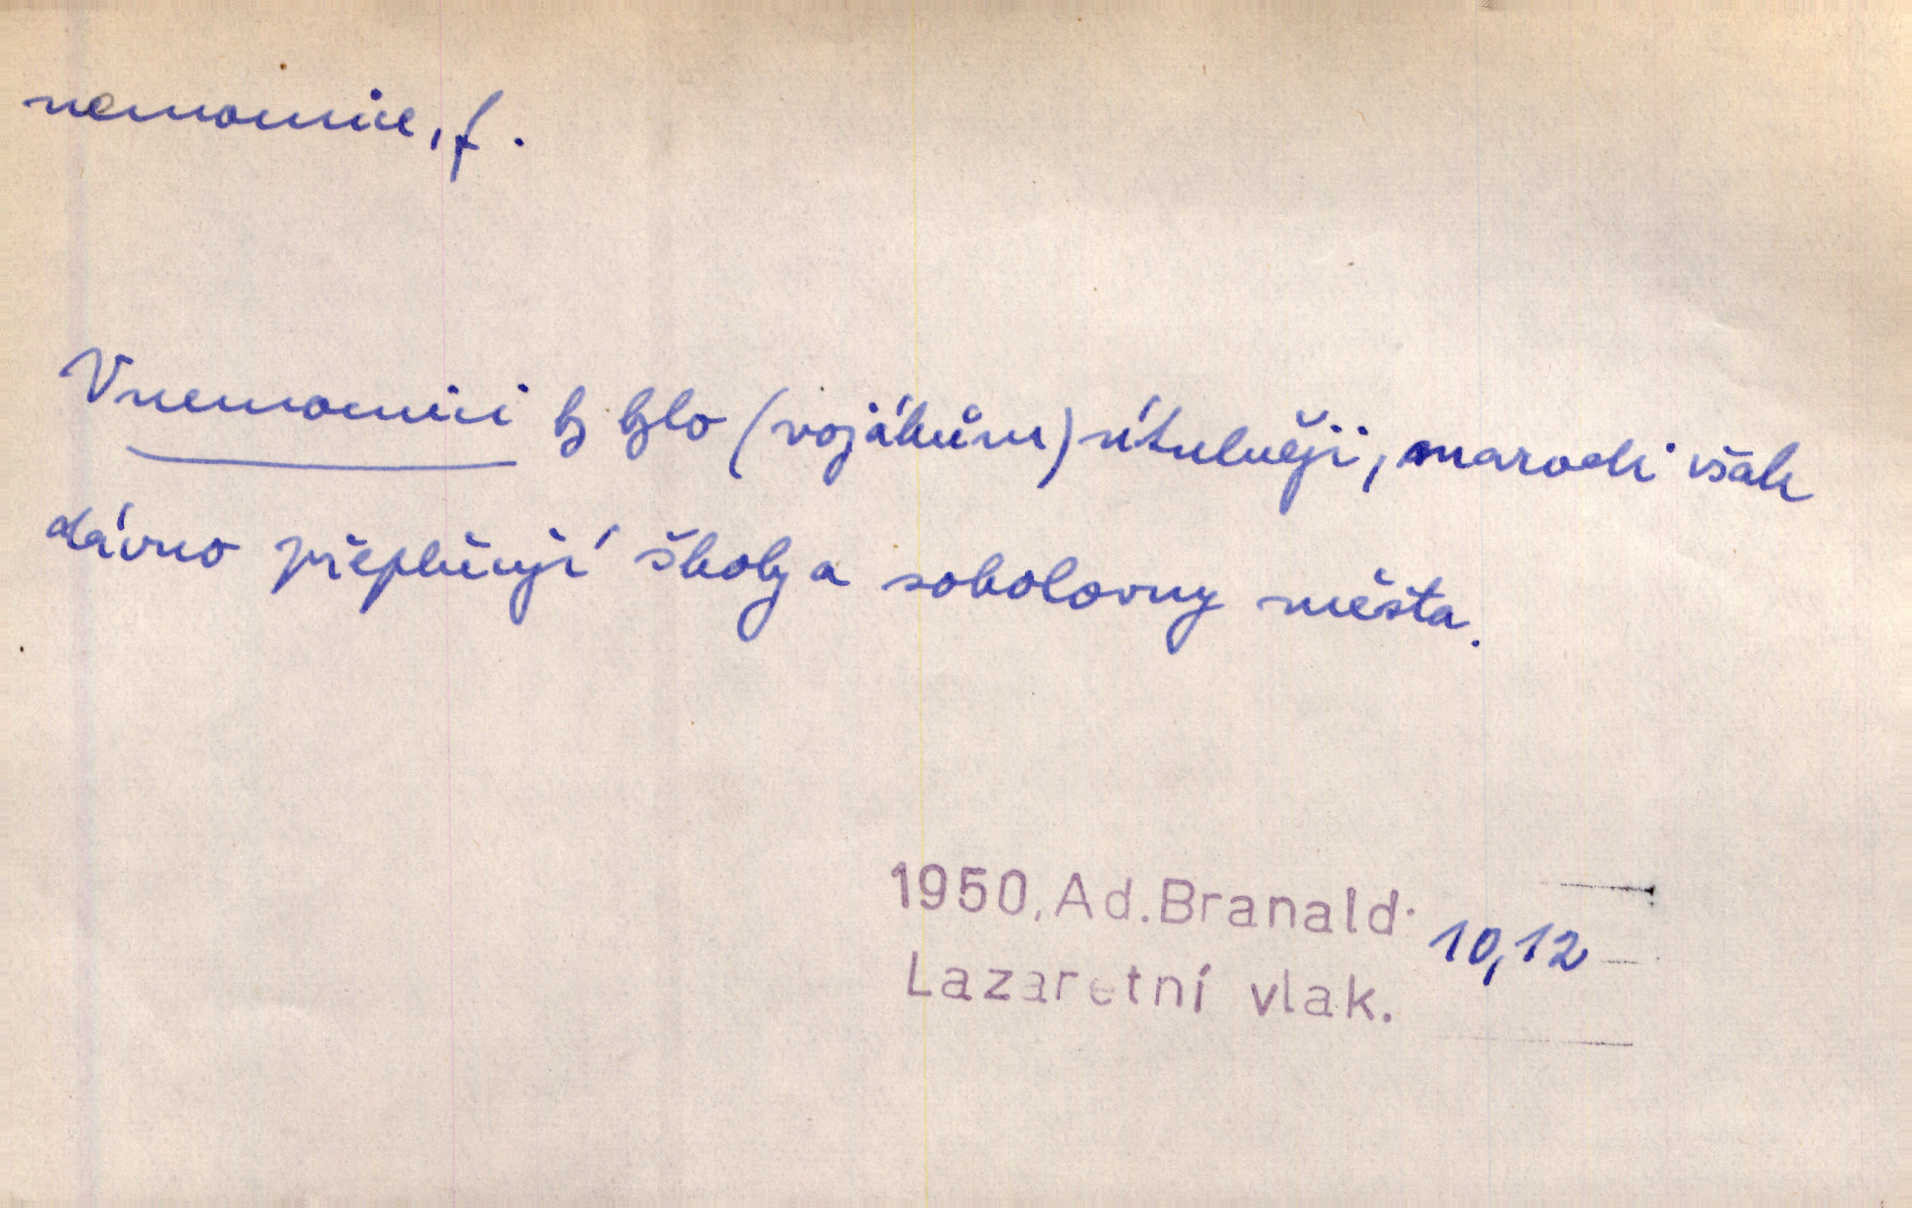 nemocnice, f.
V nemocnici by bylo (vojákům) útulněji, marodi však
dávno přeplňují školy a sokolovny města.
1950, Ad. Branald 10,12
Lazaretní vlak.